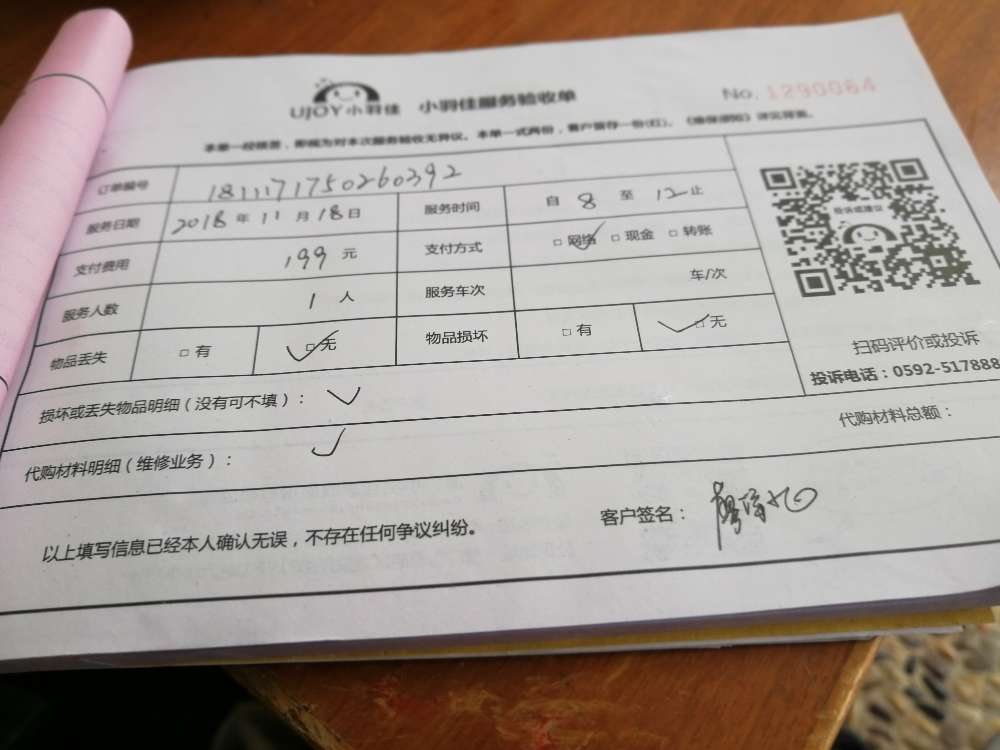 UJOY小羽佳 小羽佳服务验收单 No. 1290064
本单一经核签，即视为对本次服务验收无异议。本单一式两份，客户留存一份(红)。《维保须知》详见背面。
订单编号 1811171750260392
服务日期 2018 年 11 月 18 日 服务时间 自 8 至 12 止
支付费用 199 元 支付方式 □ 网络 □ 现金 □ 转账
服务人数 1 人 服务车次 车/次
物品丢失 □ 有 □ 无 物品损坏 □ 有 □ 无
投诉或建议
扫码评价或投诉
投诉电话：0592-517888
损坏或丢失物品明细（没有可不填）：
代购材料明细（维修业务）： 代购材料总额：
以上填写信息已经本人确认无误，不存在任何争议纠纷。 客户签名：